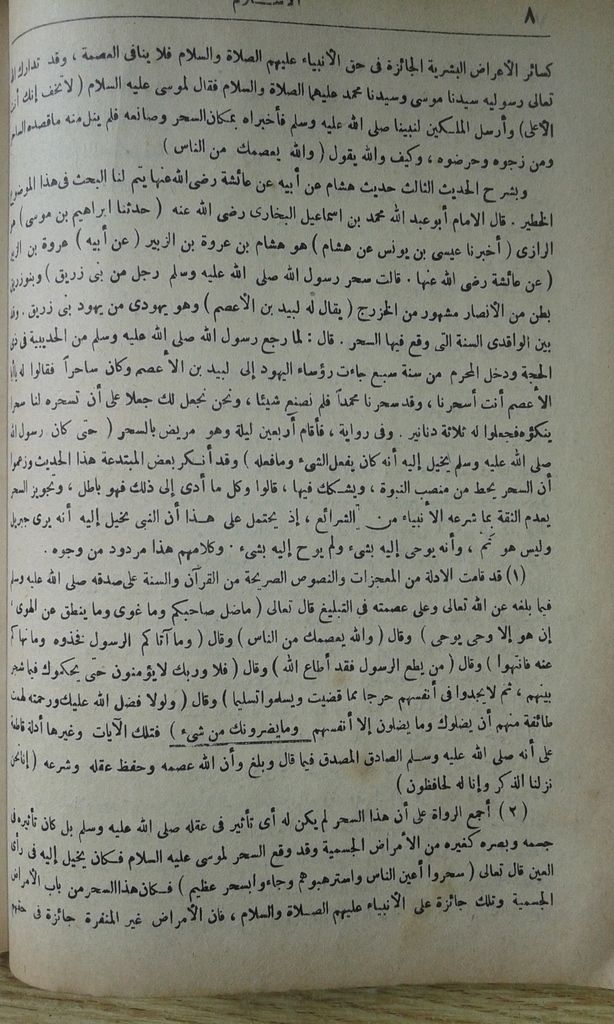 ٨
الاسلام
كسائر الأعراض البشرية الجائزة فى حق الأنبياء عليهم الصلاة والسلام فلا ينافى العصمة ، وقد تدارك
تعالى رسوليه سيدنا موسى وسيدنا محمد عليهما الصلاة والسلام فقال لموسى عليه السلام ( لا تخف إنك أنت
الأعلى) وأرسل الملكين لنبينا صلى الله عليه وسلم فأخبراه بمكان السحر وصانعه فلم ينل منه ما قصده
ومن زجوه وحرضوه ، وكيف والله يقول ( والله يعصمك من الناس )
وبشرح الحديث الثالث حديث هشام عن أبيه عن عائشة رضى الله عنها يتم لنا البحث فى هذا الموضوع
الخطير . قال الامام أبو عبد الله محمد بن اسماعيل البخارى رضى الله عنه ( حدثنا ابراهيم بن موسى ) هو
الرازى ( أخبرنا عيسى بن يونس عن هشام ) هو هشام بن عروة بن الزبير ( عن أبيه ) عروة بن الزبير
( عن عائشة رضى الله عنها . قالت سحر رسول الله صلى الله عليه وسلم رجل من بنى زريق ) وبنو زريق
بطن من الأنصار مشهور من الخزرج ( يقال له لبيد بن الأعصم ) وهو يهودى من يهود بنى زريق . وقد
بين الواقدى السنة التى وقع فيها السحر . قال : لما رجع رسول الله صلى الله عليه وسلم من الحديبية فى ذى
الحجة ودخل المحرم من سنة سبع جاءت رؤساء اليهود إلى لبيد بن الأعصم وكان ساحراً فقالوا له
الأعصم أنت أسحرنا ، وقد سحرنا محمداً فلم نصنع شيئا ، ونحن نجعل لك جعلا على أن تسحره لنا سحرا
ينكؤه فجعلوا له ثلاثة دنانير . وفى رواية ، فأقام أربعين ليلة وهو مريض بالسحر ( حتى كان رسول الله
صلى الله عليه وسلم يخيل إليه أنه كان يفعل الشىء وما فعله ) وقد أنكر بعض المبتدعة هذا الحديث وزعموا
أن السحر يحط من منصب النبوة ، ويشكك فيها ، قالوا وكل ما أدى إلى ذلك فهو باطل ، وتجويز السحر
يعدم الثقة بما شرعه الأنبياء من الشرائع ، إذ يحتمل على هذا أن النبى يخيل إليه أنه يرى جبريل
وليس هو ثم ، وأنه يوحى إليه بشىء ولم يوح إليه بشىء . وكلامهم هذا مردود من وجوه .
(١) قد قامت الادلة من المعجزات والنصوص الصريحة من القرآن والسنة على صدقه صلى الله عليه وسلم
فيما بلغه عن الله تعالى وعلى عصمته فى التبليغ قال تعالى ( ماضل صاحبكم وما غوى وما ينطق عن الهوى
إن هو إلا وحى يوحى ) وقال ( والله يعصمك من الناس ) وقال ( وما آتاكم الرسول فخذوه وما نهاكم
عنه فانتهوا ) وقال ( من يطع الرسول فقد أطاع الله ) وقال ( فلا وربك لا يؤمنون حتى يحكموك فيما شجر
بينهم ، ثم لا يجدوا فى أنفسهم حرجا مما قضيت ويسلموا تسليما ) وقال ( ولولا فضل الله عليك ورحمته لهمت
طائفة منهم أن يضلوك وما يضلون إلا أنفسهم وما يضرونك من شىء ) فتلك الآيات وغيرها أدلة قاطعة
على أنه صلى الله عليه وسلم الصادق المصدق فيما قال وبلغ وأن الله عصمه وحفظ عقله وشرعه ( إنا نحن
نزلنا الذكر وإنا له لحافظون )
(٢) أجمع الرواة على أن هذا السحر لم يكن له أى تأثير فى عقله صلى الله عليه وسلم بل كان تأثيره فى
جسمه وبصره كغيره من الأمراض الجسمية وقد وقع السحر لموسى عليه السلام فكان يخيل إليه فى رأى
العين قال تعالى ( سحروا أعين الناس واسترهبوهم وجاءوا بسحر عظيم ) فكان هذا السحر من باب الأمراض
الجسمية وتلك جائزة على الأنبياء عليهم الصلاة والسلام ، فان الأمراض غير المنفرة جائزة فى حقهم